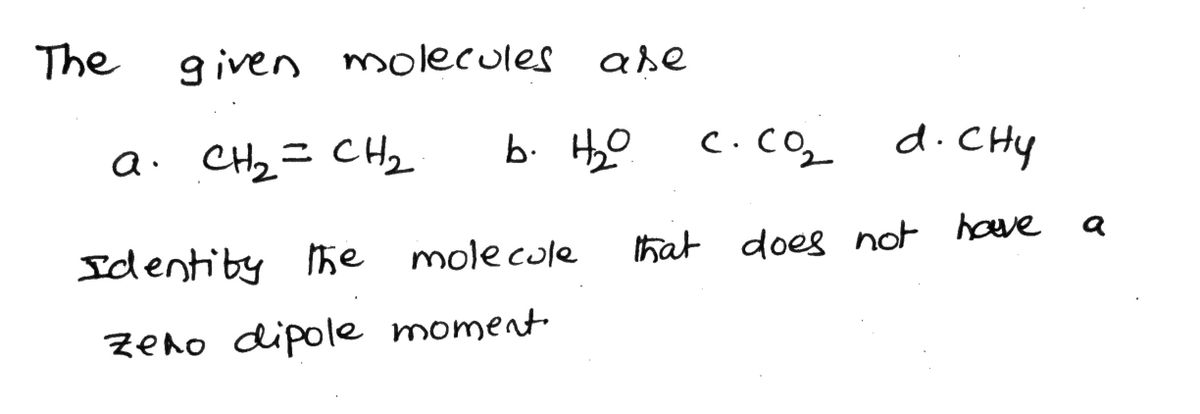 The given molecules are
a. CH₂ = CH₂ b. H₂O c. CO₂ d. CH4
Identity the molecule that does not have a
zero dipole moment.